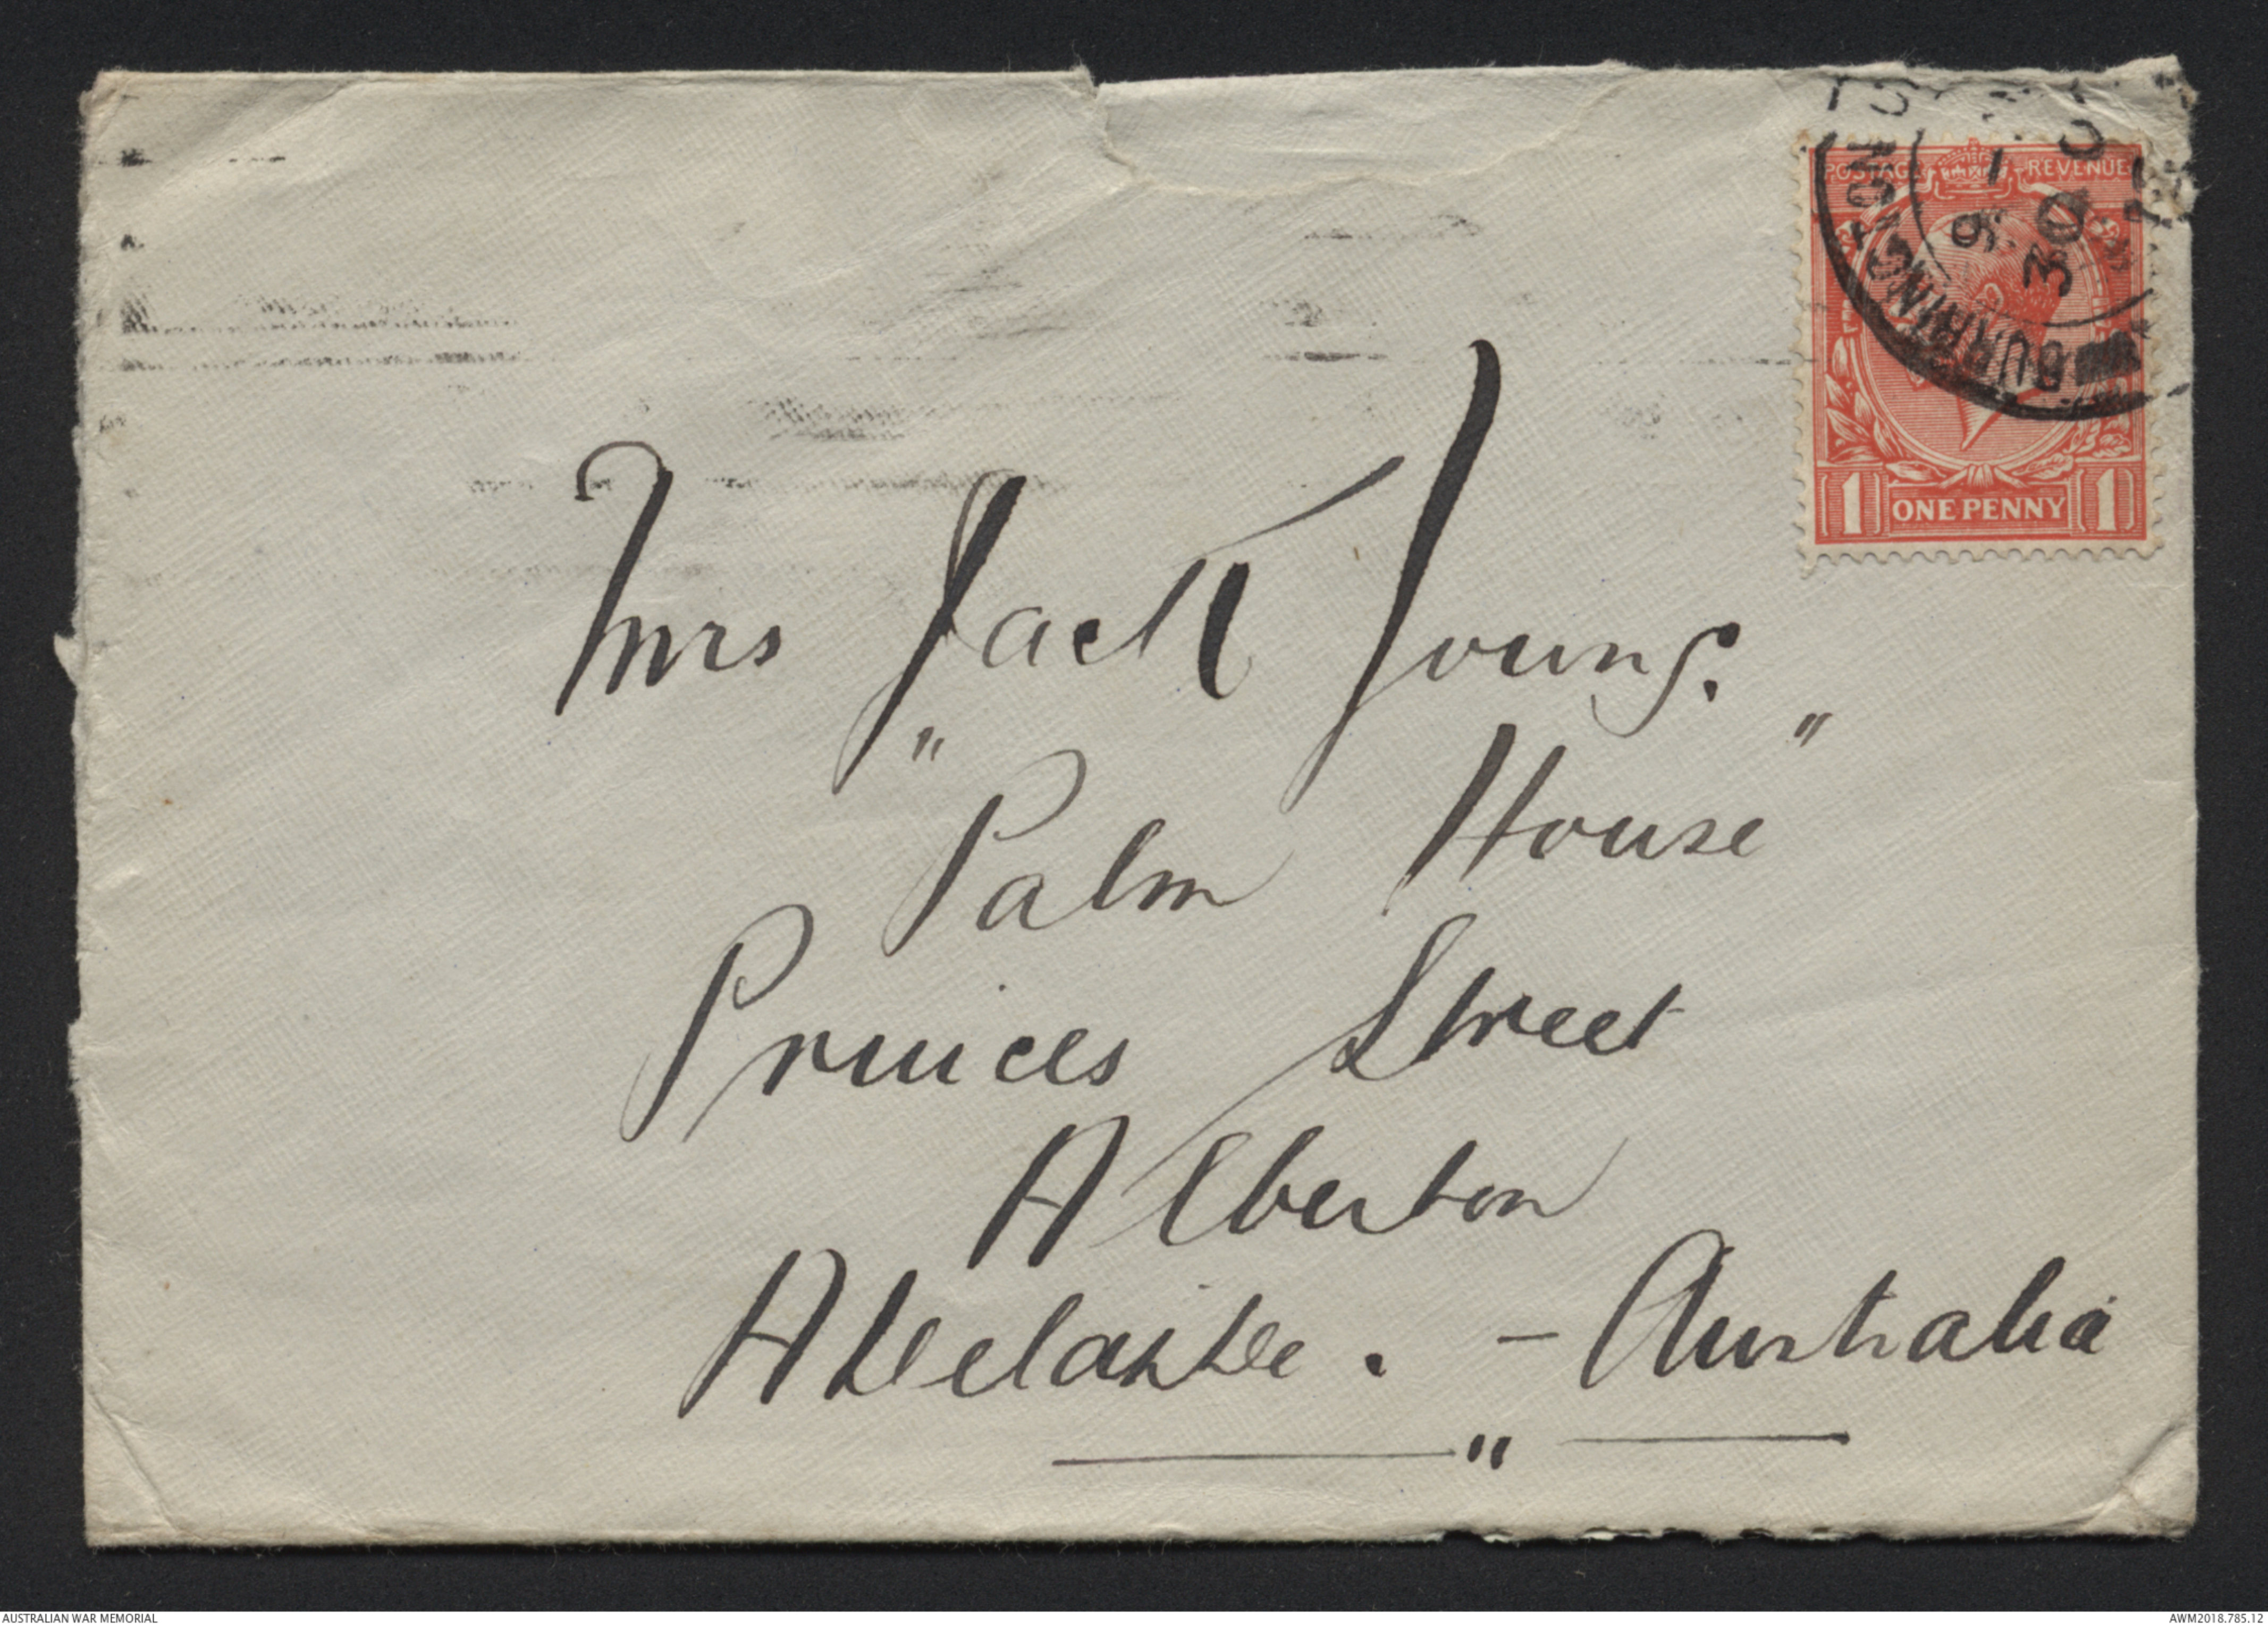 POSTAGE REVENUE
BURRINGTON
9
30
1 ONE PENNY 1
Mrs Jack Young.
"Palm House"
Princes Street
Alberton
Adelaide. - Australia
"
AUSTRALIAN WAR MEMORIAL
AWM2018.785.12